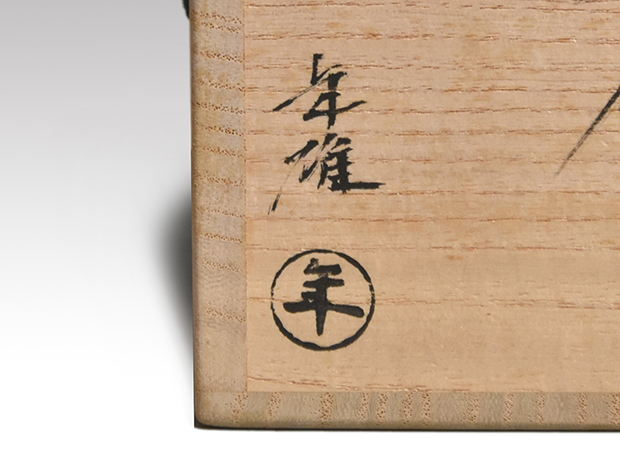 年雄
年